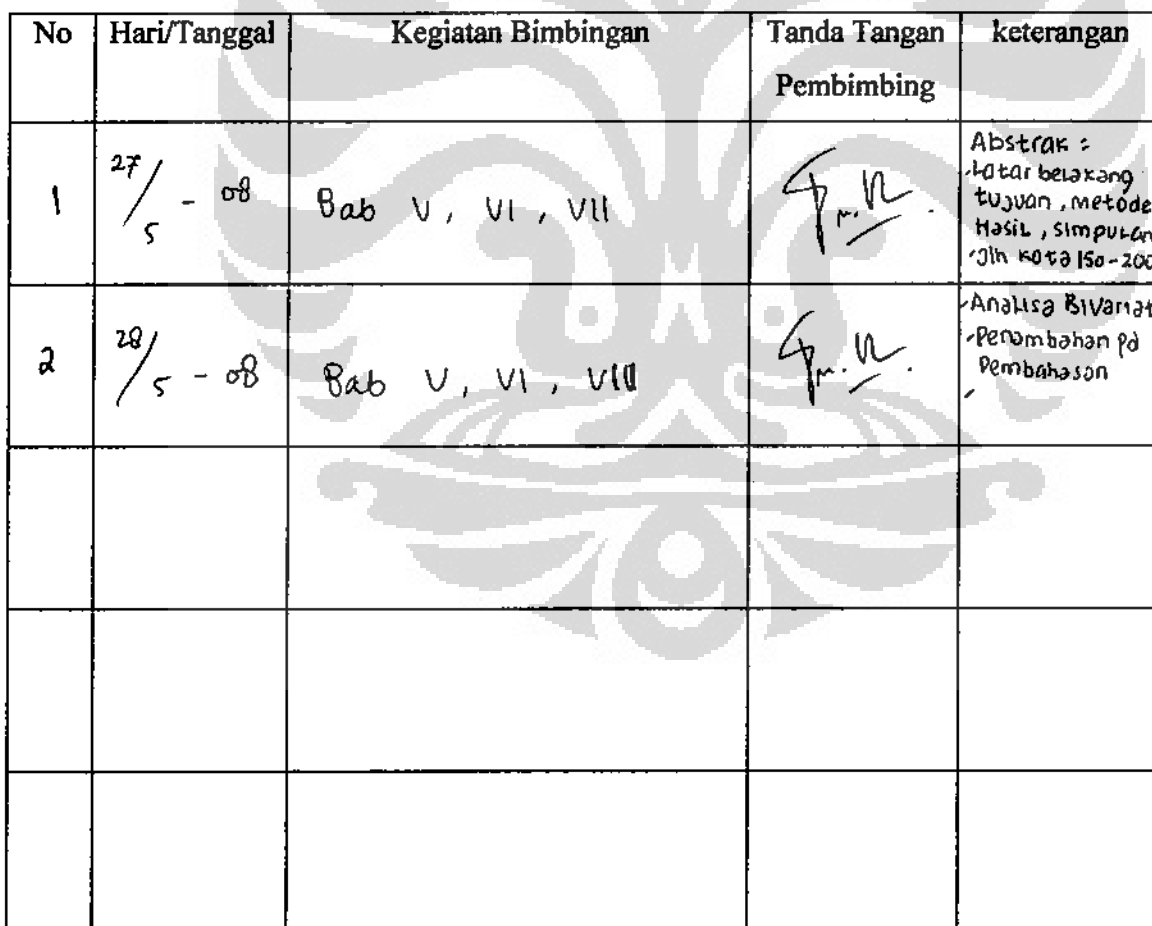 No Hari/Tanggal Kegiatan Bimbingan Tanda Tangan Pembimbing keterangan
1 27/5 - 08 Bab V, VI, VII
Abstrak :
-Latar belakang
tujuan, metode
Hasil, simpulan
-Jlh kata 150-200
2 28/5 - 08 Bab V, VI, VII
-Analisa Bivariat
-Penambahan pd
Pembahasan